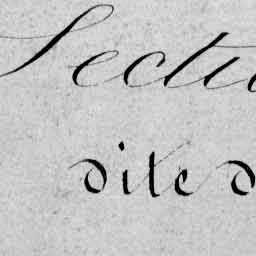 Secti
dite d